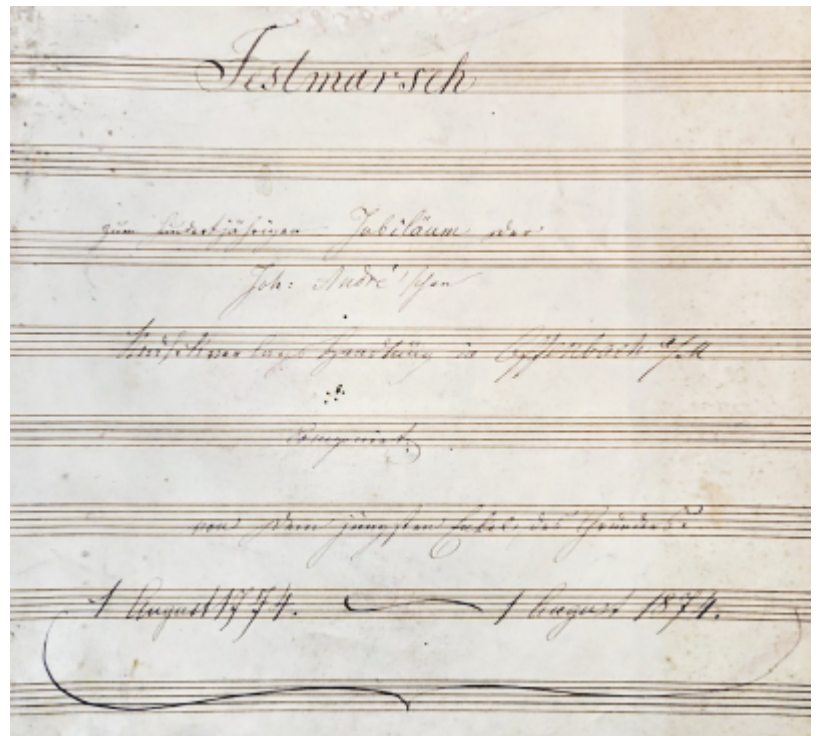 Festmarsch
zum hundertjährigen Jubiläum der
Joh: André'schen
Musikverlags Handlung in Offenbach a/M
componirt
von dem jüngsten Enkel des Gründers.
1 August 1774. — 1 August 1874.